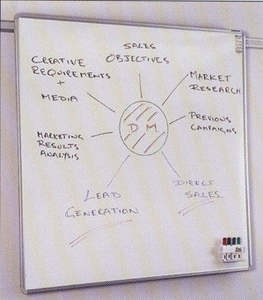 SALES
OBJECTIVES
CREATIVE
REQUIREMENTS
+
MEDIA
MARKET
RESEARCH
DM
PREVIOUS
CAMPAIGNS
MARKETING
RESULTS
ANALYSIS
LEAD
GENERATION
DIRECT
SALES